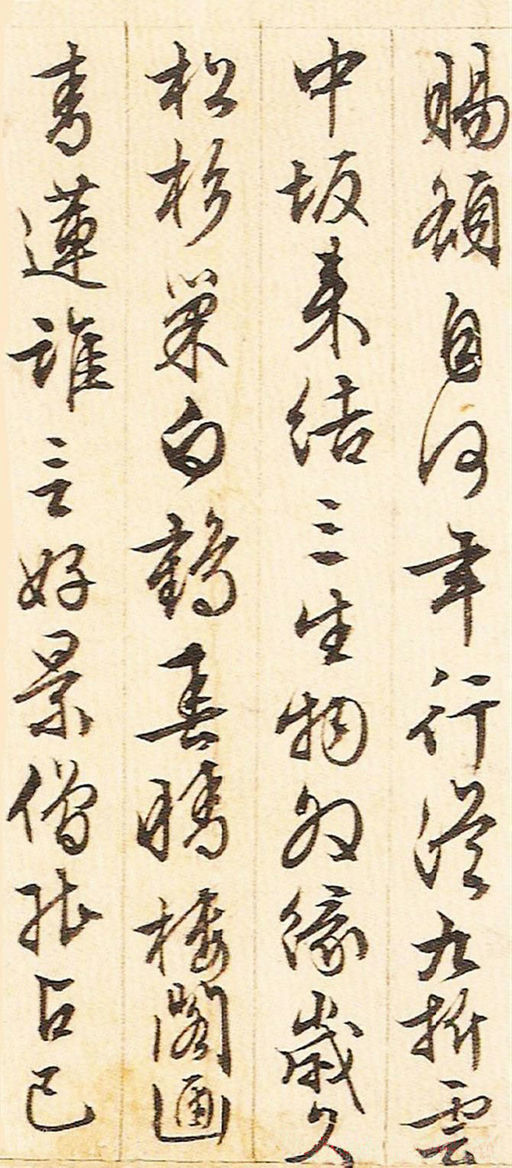 賜額自何年行從九折雲
中坂來結三生物外緣歲久
松杉巢白鶴春晴樓閣
青蓮誰言好景僧能占已